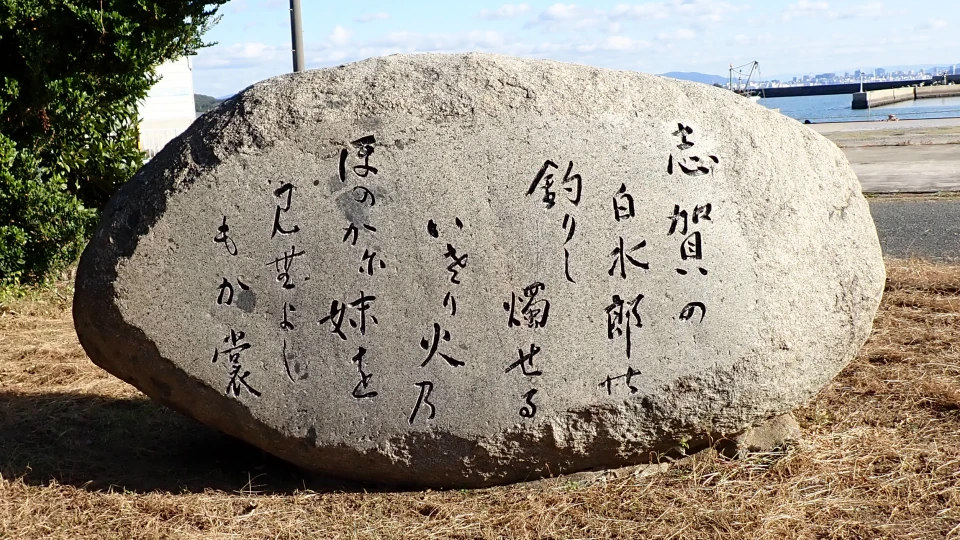 志賀の
白水郎
釣りし 燭せる
いさり火乃
ほのか尓妹を
見無よし
もか裳